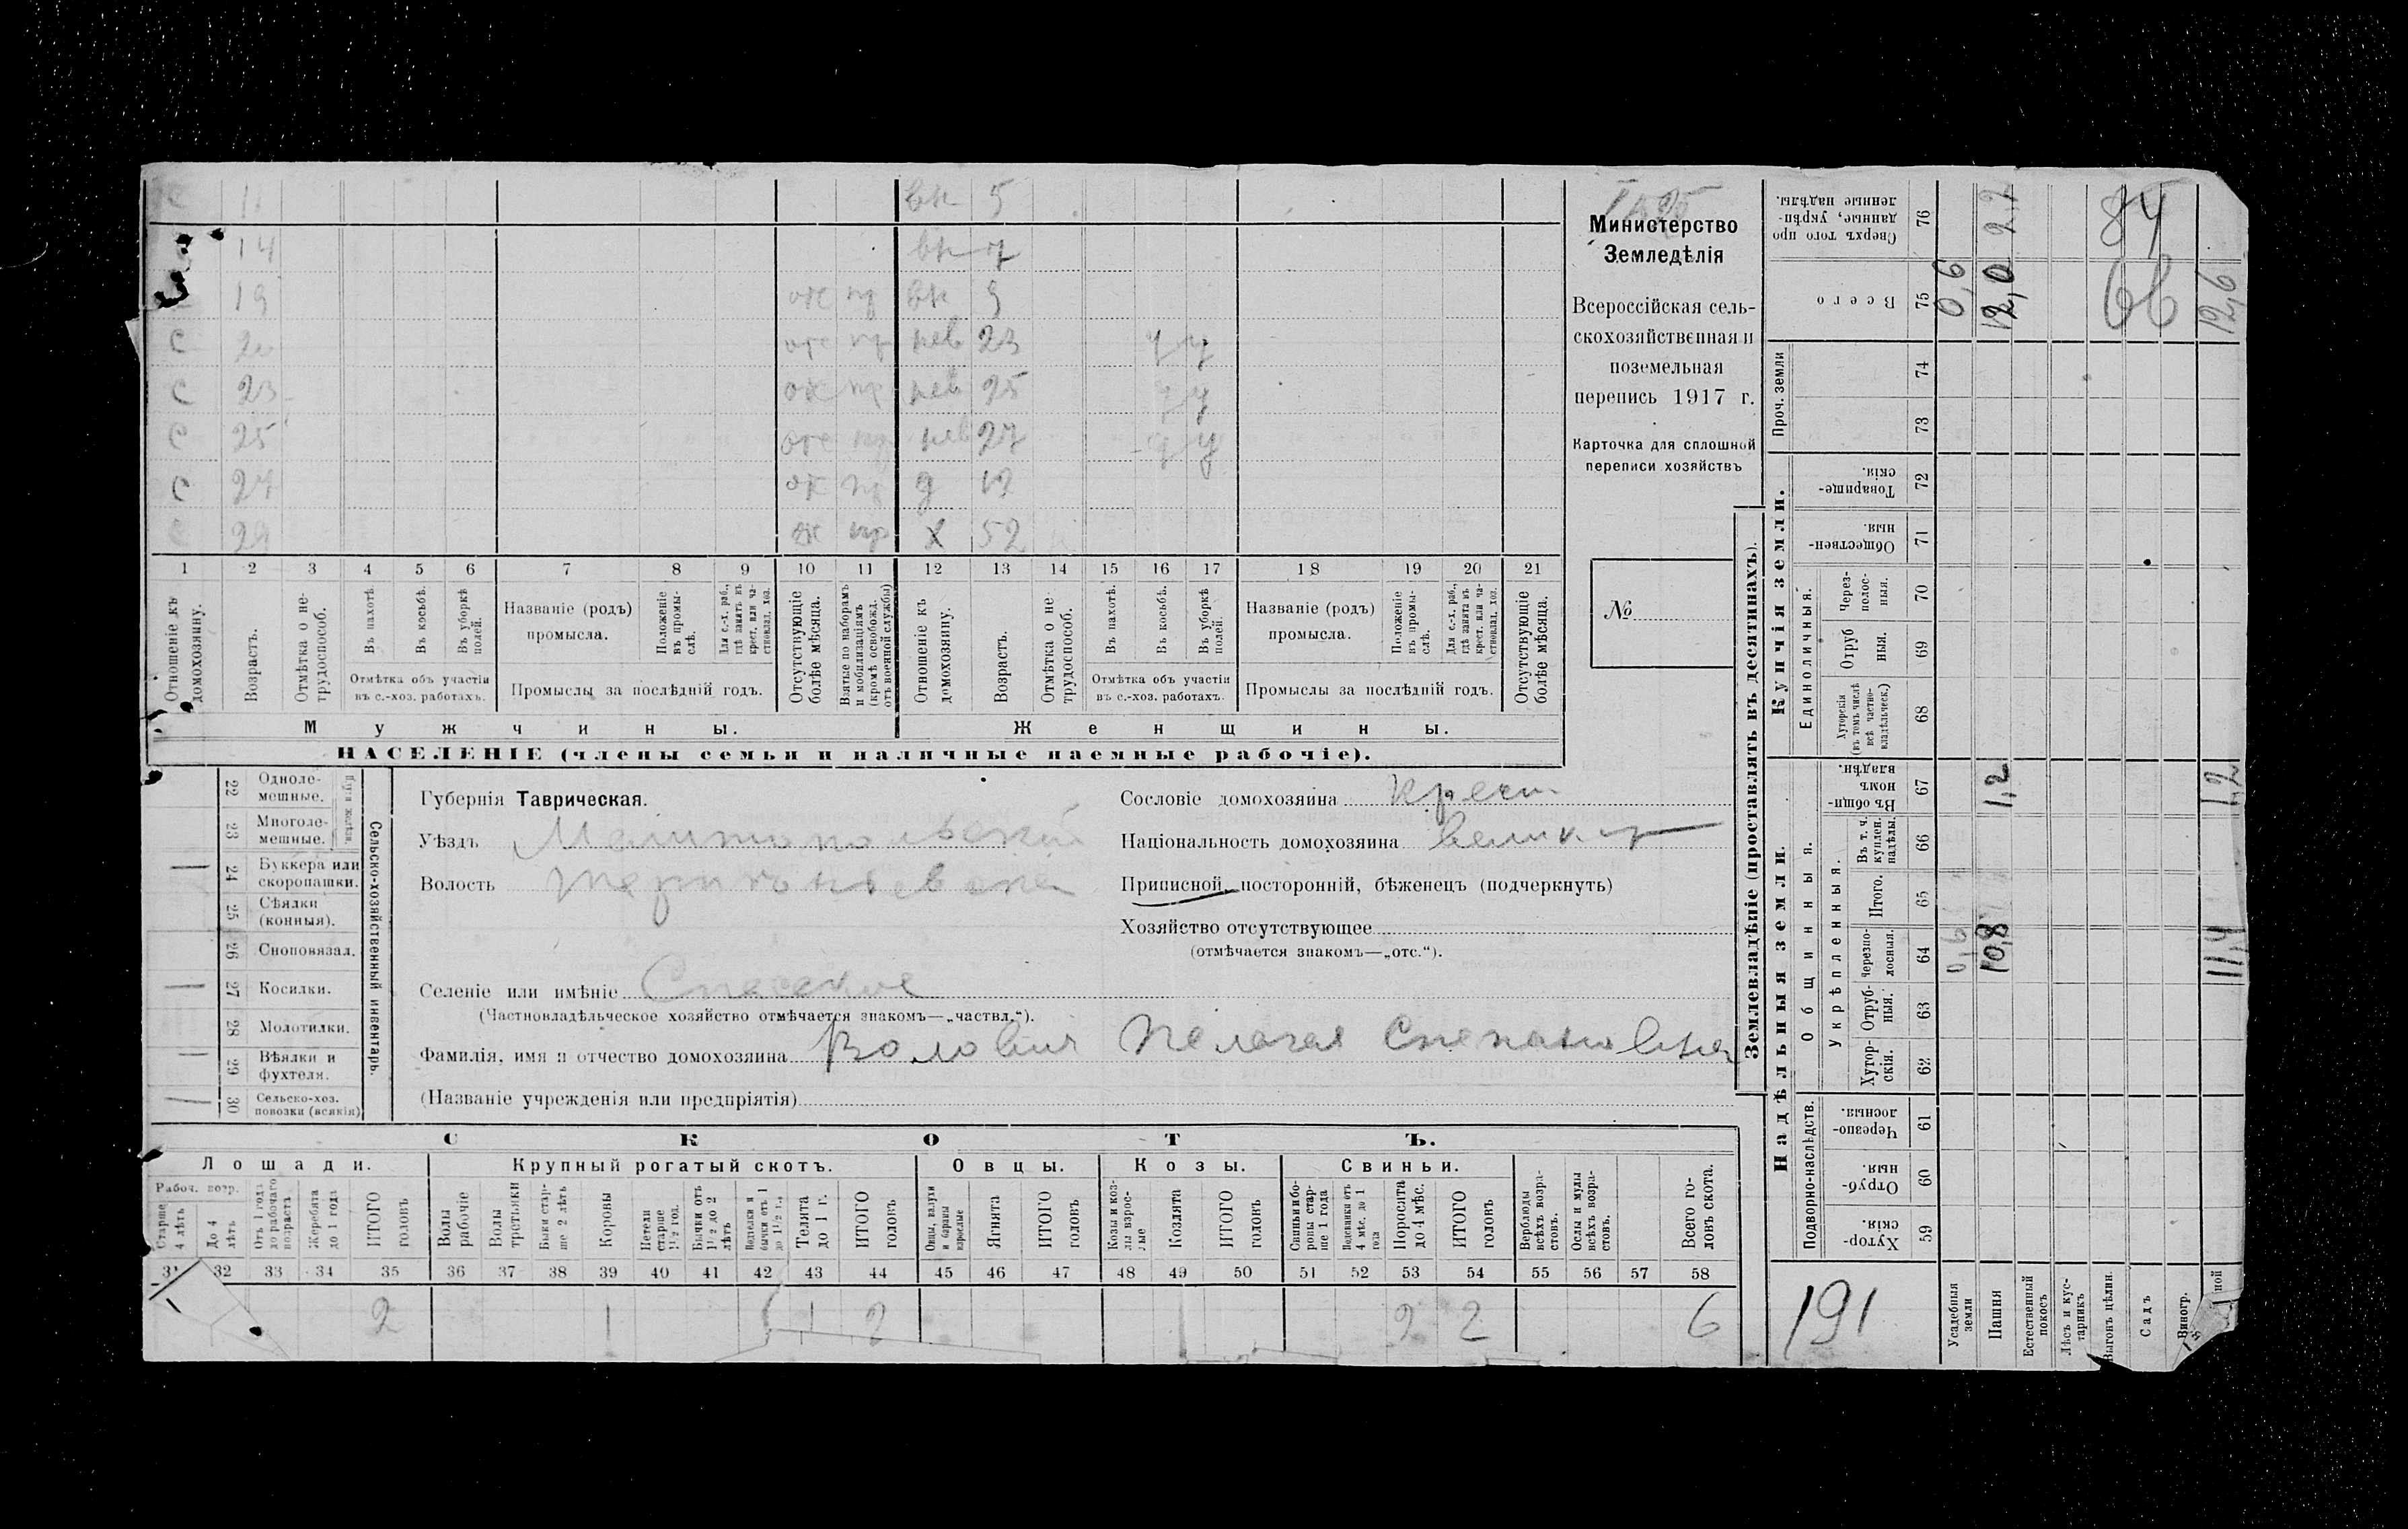 с 11 вн 5
14 вн 7
19 от пр вн 9
с 20 от пр нев 23 ч ч
с 23 от пр нев 25 ч ч
с 25 от пр нев 27 ч ч
с 27 от пр д 12
с 29 от пр х 52
1 2 3 4 5 6 7 8 9 10 11 12 13 14 15 16 17 18 19 20 21
Отношеніе къ домохозяину.
Возрастъ.
Отмѣтка о не-трудоспособ.
Въ пахотѣ.
Въ косьбѣ.
Въ уборкѣ полей.
Отмѣтка объ участіи въ с.-хоз. работахъ.
Названіе (родъ) промысла.
Положеніе въ промы-слѣ.
Для с.-х. раб., гдѣ занятъ въ крест. или ча-стновлад. хоз.
Промыслы за послѣдній годъ.
Отсутствующіе болѣе мѣсяца.
Взятые по наборамъ и мобилизаціямъ (кромѣ освобожд. отъ военной службы)
Отношеніе къ домохозяину.
Возрастъ.
Отмѣтка о не трудоспособ.
Въ пахотѣ.
Въ косьбѣ.
Въ уборкѣ полей.
Отмѣтка объ участіи въ с.-хоз. работахъ.
Названіе (родъ) промысла.
Положеніе въ промы-слѣ.
Для с.-х. раб., гдѣ занята въ крест. или ча-стновлад. хоз.
Промыслы за послѣдній годъ.
Отсутствующіе болѣе мѣсяца.
Мужчины.
Женщины.
НАСЕЛЕНІЕ (члены семьи и наличные наемные рабочіе).
Министерство
Земледѣлія
Всероссійская сель-
скохозяйственная и
поземельная
перепись 1917 г.
Карточка для сплошной
переписи хозяйствъ
№
22 Одноле-мешные.
23 Многоле-мешные.
24 Буккера или скоропашки.
25 Сѣялки (конныя).
26 Сноповязал.
27 Косилки.
28 Молотилки.
29 Вѣялки и фухтеля.
30 Сельско-хоз. повозки (всякія)
Сельско-хозяйственный инвентарь.
Губернія Таврическая.
Уѣздъ Мелитопольскій
Волость
Селеніе или имѣніе Спасское
(Частновладѣльческое хозяйство отмѣчается знакомъ—„частвл.“).
Фамилія, имя и отчество домохозяина Воловик Пелагея Степановна
(Названіе учрежденія или предпріятія)
Сословіе домохозяина крест
Національность домохозяина велик.
Приписной, посторонній, бѣженецъ (подчеркнуть)
Хозяйство отсутствующее
(отмѣчается знакомъ—„отс.“).
СКОТЪ.
Лошади. Крупный рогатый скотъ. Овцы. Козы. Свиньи.
Рабоч. возр.
Старше 4 лѣтъ
До 4 лѣтъ
Отъ 1 года до рабочаго возраста
Жеребята до 1 года
ИТОГО головъ
Волы рабочіе
Волы третьяки
Быки стар-ше 2 лѣтъ
Коровы
Нетели старше 1 1/2 год.
Бычки отъ 1 1/2 до 2 лѣтъ
Подтелки и бычки отъ 1 до 1 1/2 г.
Телята до 1 г.
ИТОГО головъ
Овцы, валухи и бараны взрослые
Ягнята
ИТОГО головъ
Козы и коз-лы взрос-лые
Козлята
ИТОГО головъ
Свиньи и бо-ровы стар-ше 1 года
Подсвинки отъ 4 мѣс. до 1 года
Поросята до 4 мѣс.
ИТОГО головъ
Верблюды всѣхъ возра-стовъ.
Ослы и мулы всѣхъ возра-стовъ.
Всего го-ловъ скота.
31 32 33 34 35 36 37 38 39 40 41 42 43 44 45 46 47 48 49 50 51 52 53 54 55 56 57 58
2 1 1 2 2 2 6
Землевладѣніе (проставлять въ десятинахъ).
Надѣльныя земли.
Купчія земли.
Проч. земли
Подворно-наслѣдств.
Общинныя.
Укрѣпленныя.
Единоличныя.
59 Хутор-скія.
60 Отруб-ныя.
61 Черезпо-лосныя.
62 Хутор-скія.
63 Отруб-ныя.
64 Черезпо-лосныя.
65 Итого.
66 Въ т. ч. куплен. надѣлы.
67 Въ общи-номъ владѣн.
68 Хуторскія (въ томъ числѣ всѣ частно-владѣльческ.)
69 Отруб ныя.
70 Через-полос-ныя.
71 Обществен-ныя.
72 Товарище-скія.
73
74
75 Всего
76 Сверхъ того про данные, укрѣп-ленные надѣлы.
Усадебныя земли 0,6 0,6
Пашня 10,8 1,2 12,0 2,2
Естественный покосъ
Лѣсъ и кус-тарникъ
Выгонъ цѣлин.
Садъ
Виногр.
11,4 1,2 12,6
84
66
191